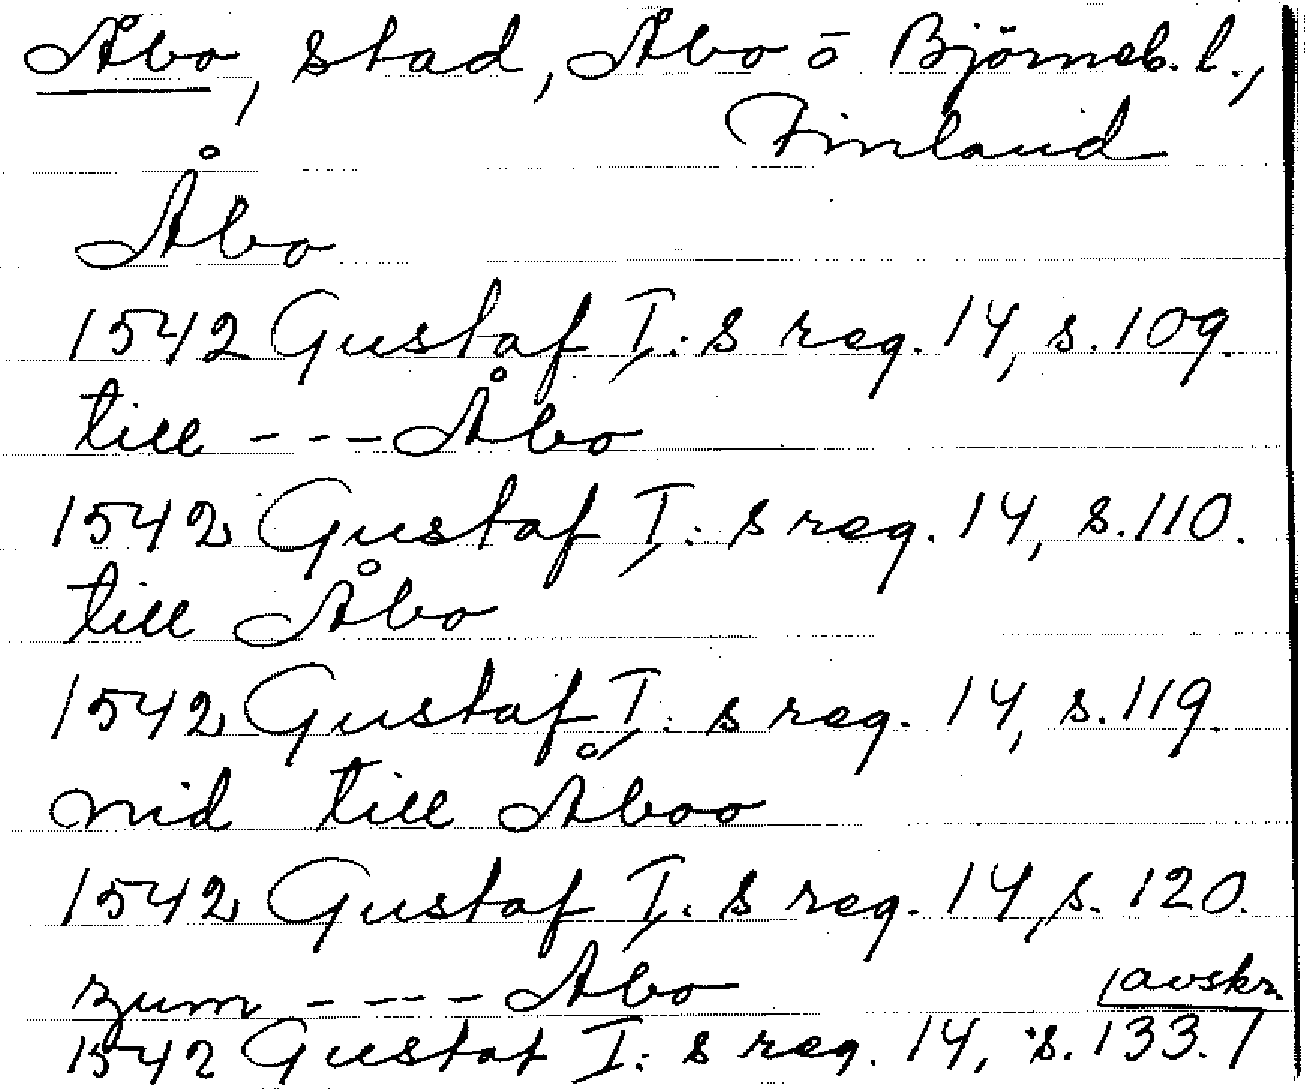 Åbo, stad, Åbo ō Björneb. l.,
Finland
Åbo
1542 Gustaf I: s reg. 14, s. 109.
till - - - Åbo
1542 Gustaf I: s reg. 14, s. 110.
till Åbo
1542 Gustaf I: s reg. 14, s. 119.
nid till Åboo
1542 Gustaf I: s reg. 14, s. 120.
zum - - - - Åbo /avskr.
1542 Gustaf I: s reg. 14, s. 133. /